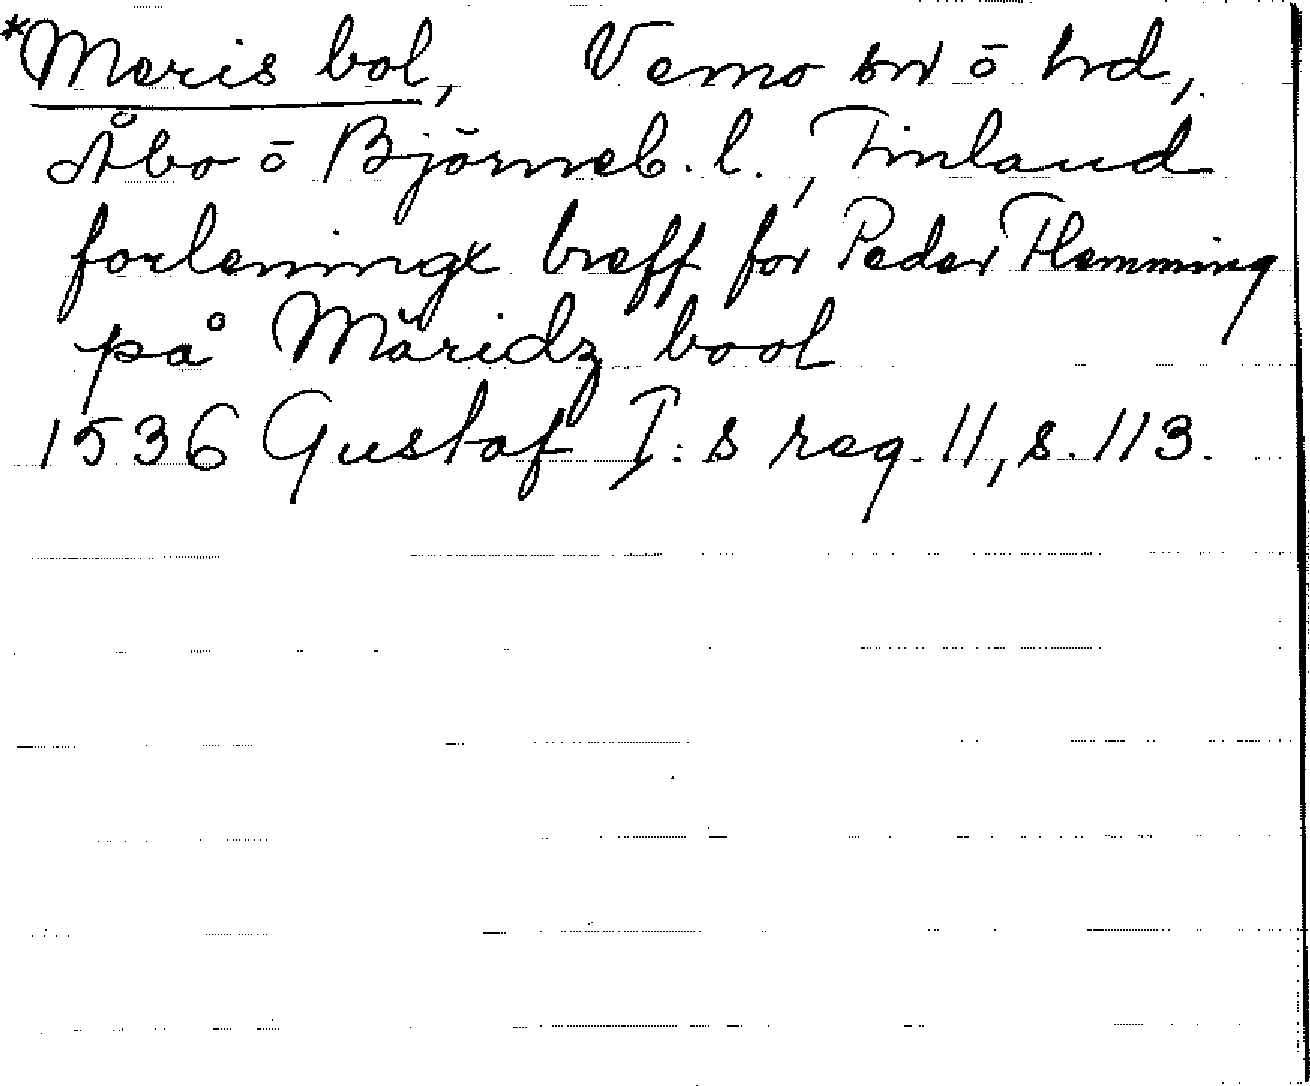 *Meris bol, Vemo sn ō hd,
Åbo ō Björneb. l., Finland
forleningx breff for Peder Flemming
på Märidz bool
1536 Gustaf I:s reg. 11, s. 113.